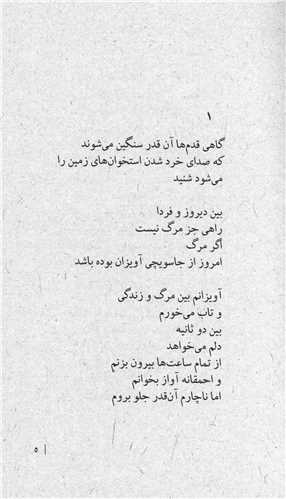 ۱
گاهی قدم‌ها آن قدر سنگین می‌شوند
که صدای خرد شدن استخوان‌های زمین را
می‌شود شنید
بین دیروز و فردا
راهی جز مرگ نیست
اگر مرگ
امروز از جاسویچی آویزان بوده باشد
آویزانم بین مرگ و زندگی
و تاب می‌خورم
بین دو ثانیه
دلم می‌خواهد
از تمام ساعت‌ها بیرون بزنم
و احمقانه آواز بخوانم
اما ناچارم آن‌قدر جلو بروم
۵ |